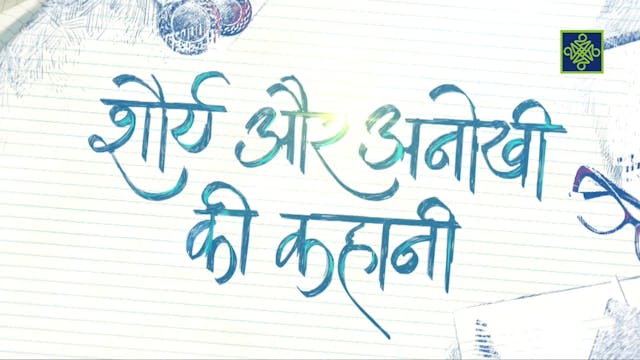 शौर्य और अनोखी
की कहानी